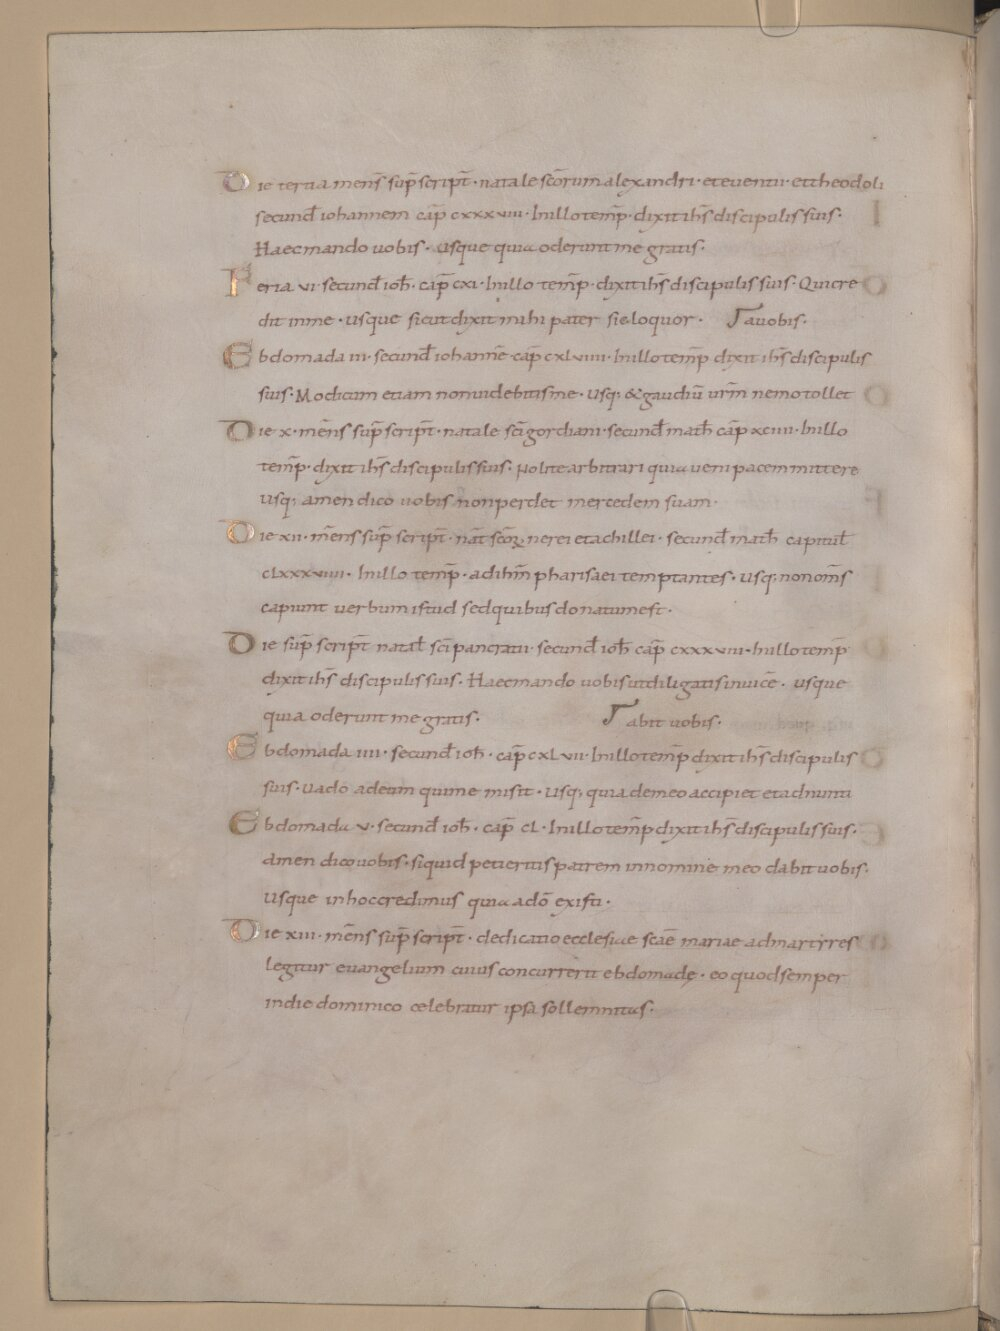 Die tertia mens̄ sup̄script̄· natale sc̄orum alexandri· et euentii· et theodoli
secund̄ iohannem cap̄ cxxxviii· In illo temp̄· dixit ih̄s discipulis suis·
Haec mando uobis· usque quia oderunt me gratis·
Feria vi· secund̄ ioh̄· cap̄ cxi· In illo temp̄· dixit ih̄s discipulis suis· Qui cre
dit in me· usque sicut dixit mihi pater sic loquor· ┌a uobis·
Ebdomada iii· secund̄ iohannē cap̄ cxlviiii· In illo temp̄ dixit ih̄s discipulis
suis· Modicum etiam non uidebitis me· usq; & gaudiū ur̄m nemo tollet
Die x· mēns sup̄script̄· natale sc̄i gordiani· secund̄ math̄ cap̄ xciiii· In illo
temp̄· dixit ih̄s discipulis suis· Nolite arbitrari quia ueni pacem mittere
usq; amen dico uobis non perdet mercedem suam·
Die xii· mēns sup̄script̄· nat̄ sc̄oꝝ nerei et achillei· secund̄ math̄ capitul̄
clxxxviiii· In illo temp̄· ad ih̄m pharisaei temptantes· usq; non om̄s
capiunt uerbum istud sed quibus donatum est·
Die sup̄script̄ natal̄ sc̄i pancratii· secund̄ ioh̄ cap̄ cxxxviii· In illo temp̄
dixit ih̄s discipulis suis· Haec mando uobis ut diligatis inuicē· usque
quia oderunt me gratis· ┌abit uobis·
Ebdomada iiii· secund̄ ioh̄· cap̄ cxlvii· In illo temp̄ dixit ih̄s discipulis
suis· uado ad eum qui me misit· usq; quia de meo accipiet et adnunti
Ebdomada v· secund̄ ioh̄· cap̄ cl· In illo temp̄ dixit ih̄s discipulis suis·
amen dico uobis· siquid petieritis patrem in nomine meo dabit uobis·
usque in hoc credimus quia a dō existi·
Die xiii· mēns sup̄script̄· dedicatio ecclesiae scāe mariae ad martyres
legitur euangelium cuius concurrerit ebdomadę· eo quod semper
in die dominico celebratur ipsa sollemnitas·